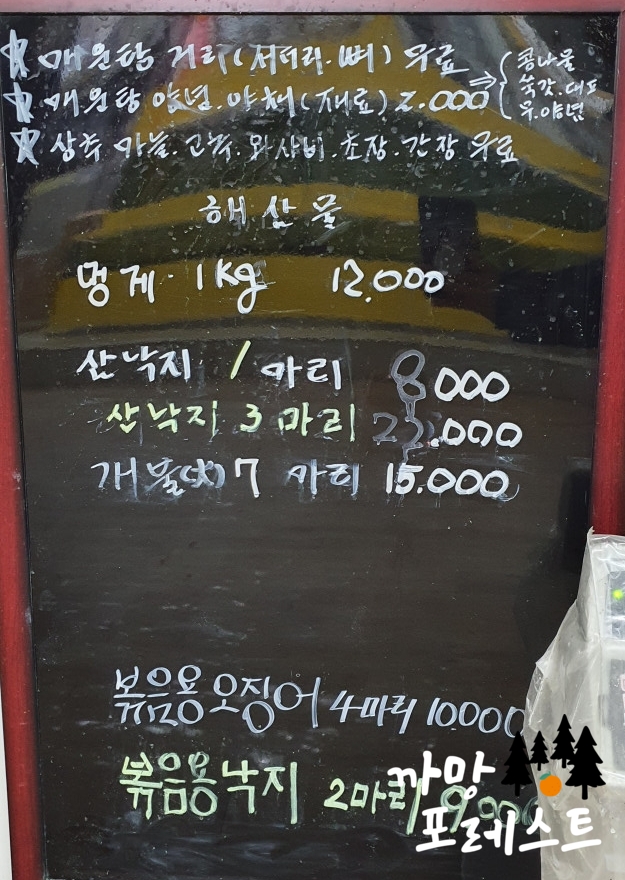 ☆ 매운탕 거리(서더리.뼈) 무료
☆ 매운탕 양념.야채(재료) 2.000 ⇒ { 콩나물
쑥갓.대파
무.양념
☆ 상추 마늘.고추.와사비.초장.간장 무료
해산물
멍게 1kg 12.000
산낙지 1마리 8000
산낙지 3마리 22.000
개불(大) 7마리 15.000
볶음용오징어 4마리 10000
볶음용낙지 2마리 9.000
까망
포레스트